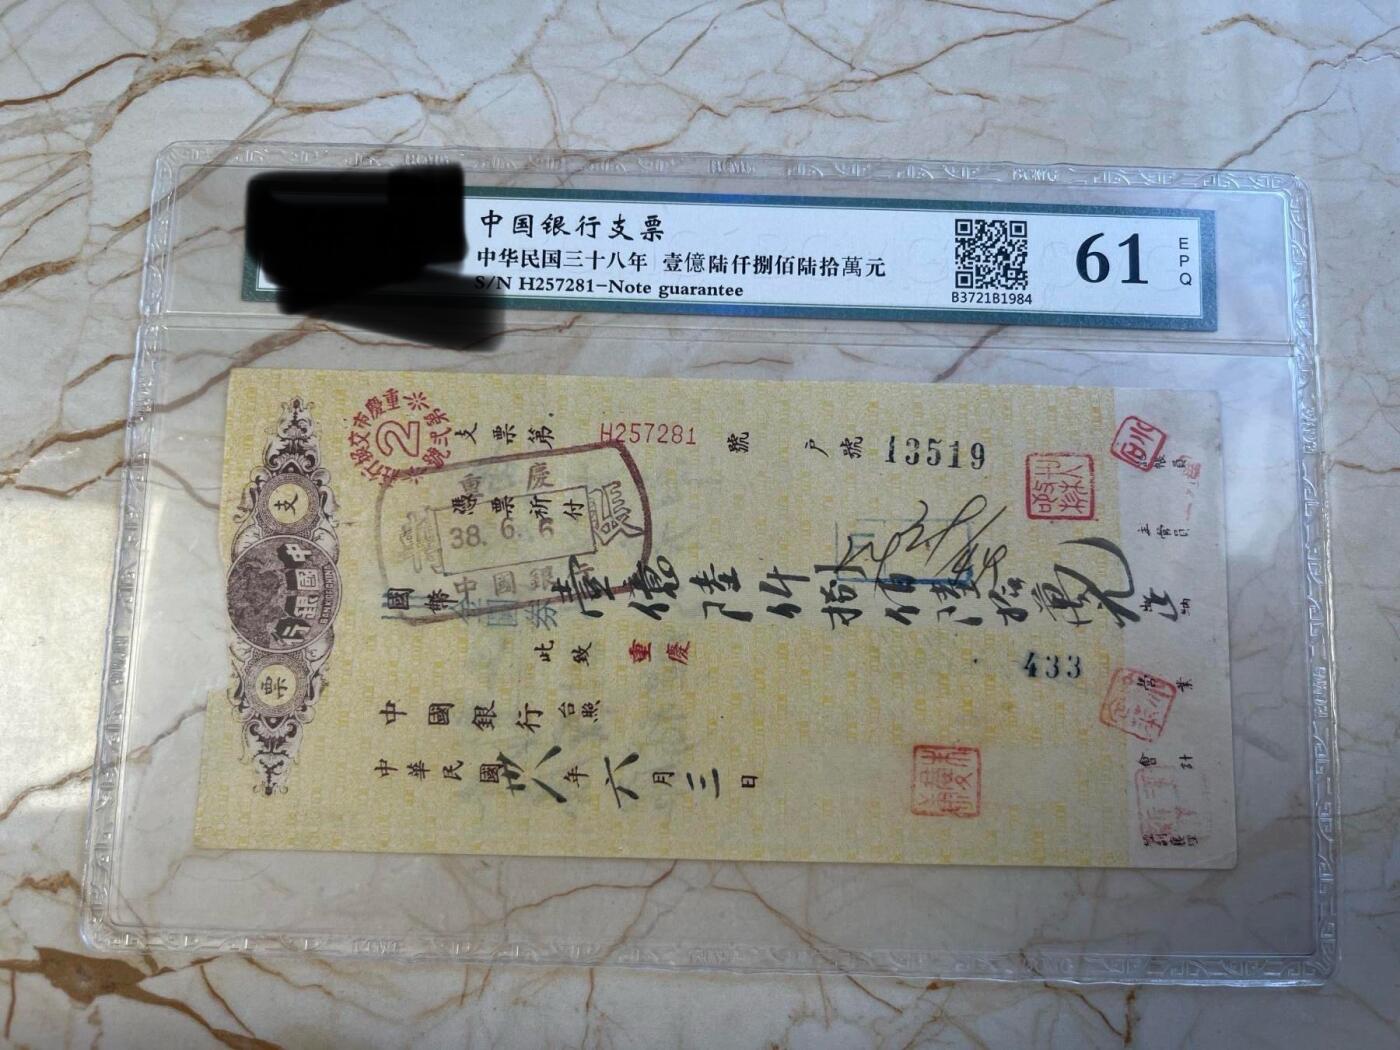 中国银行支票
中华民国三十八年 壹億陆仟捌佰陆拾萬元
S/N H257281-Note guarantee
B3721B1984
61
EPQ
重慶市交換行
2
第貳號
支票第 H257281 號
户號 13519
憑票祈付
重慶
38. 6.
中國銀行
支
票
BANK OF CHINA
國幣 壹億陸仟捌佰陸拾萬元
金圓券
此致 重慶
433
中國銀行 台照
中華民國卅八年六月三日
主管員
營業
會計